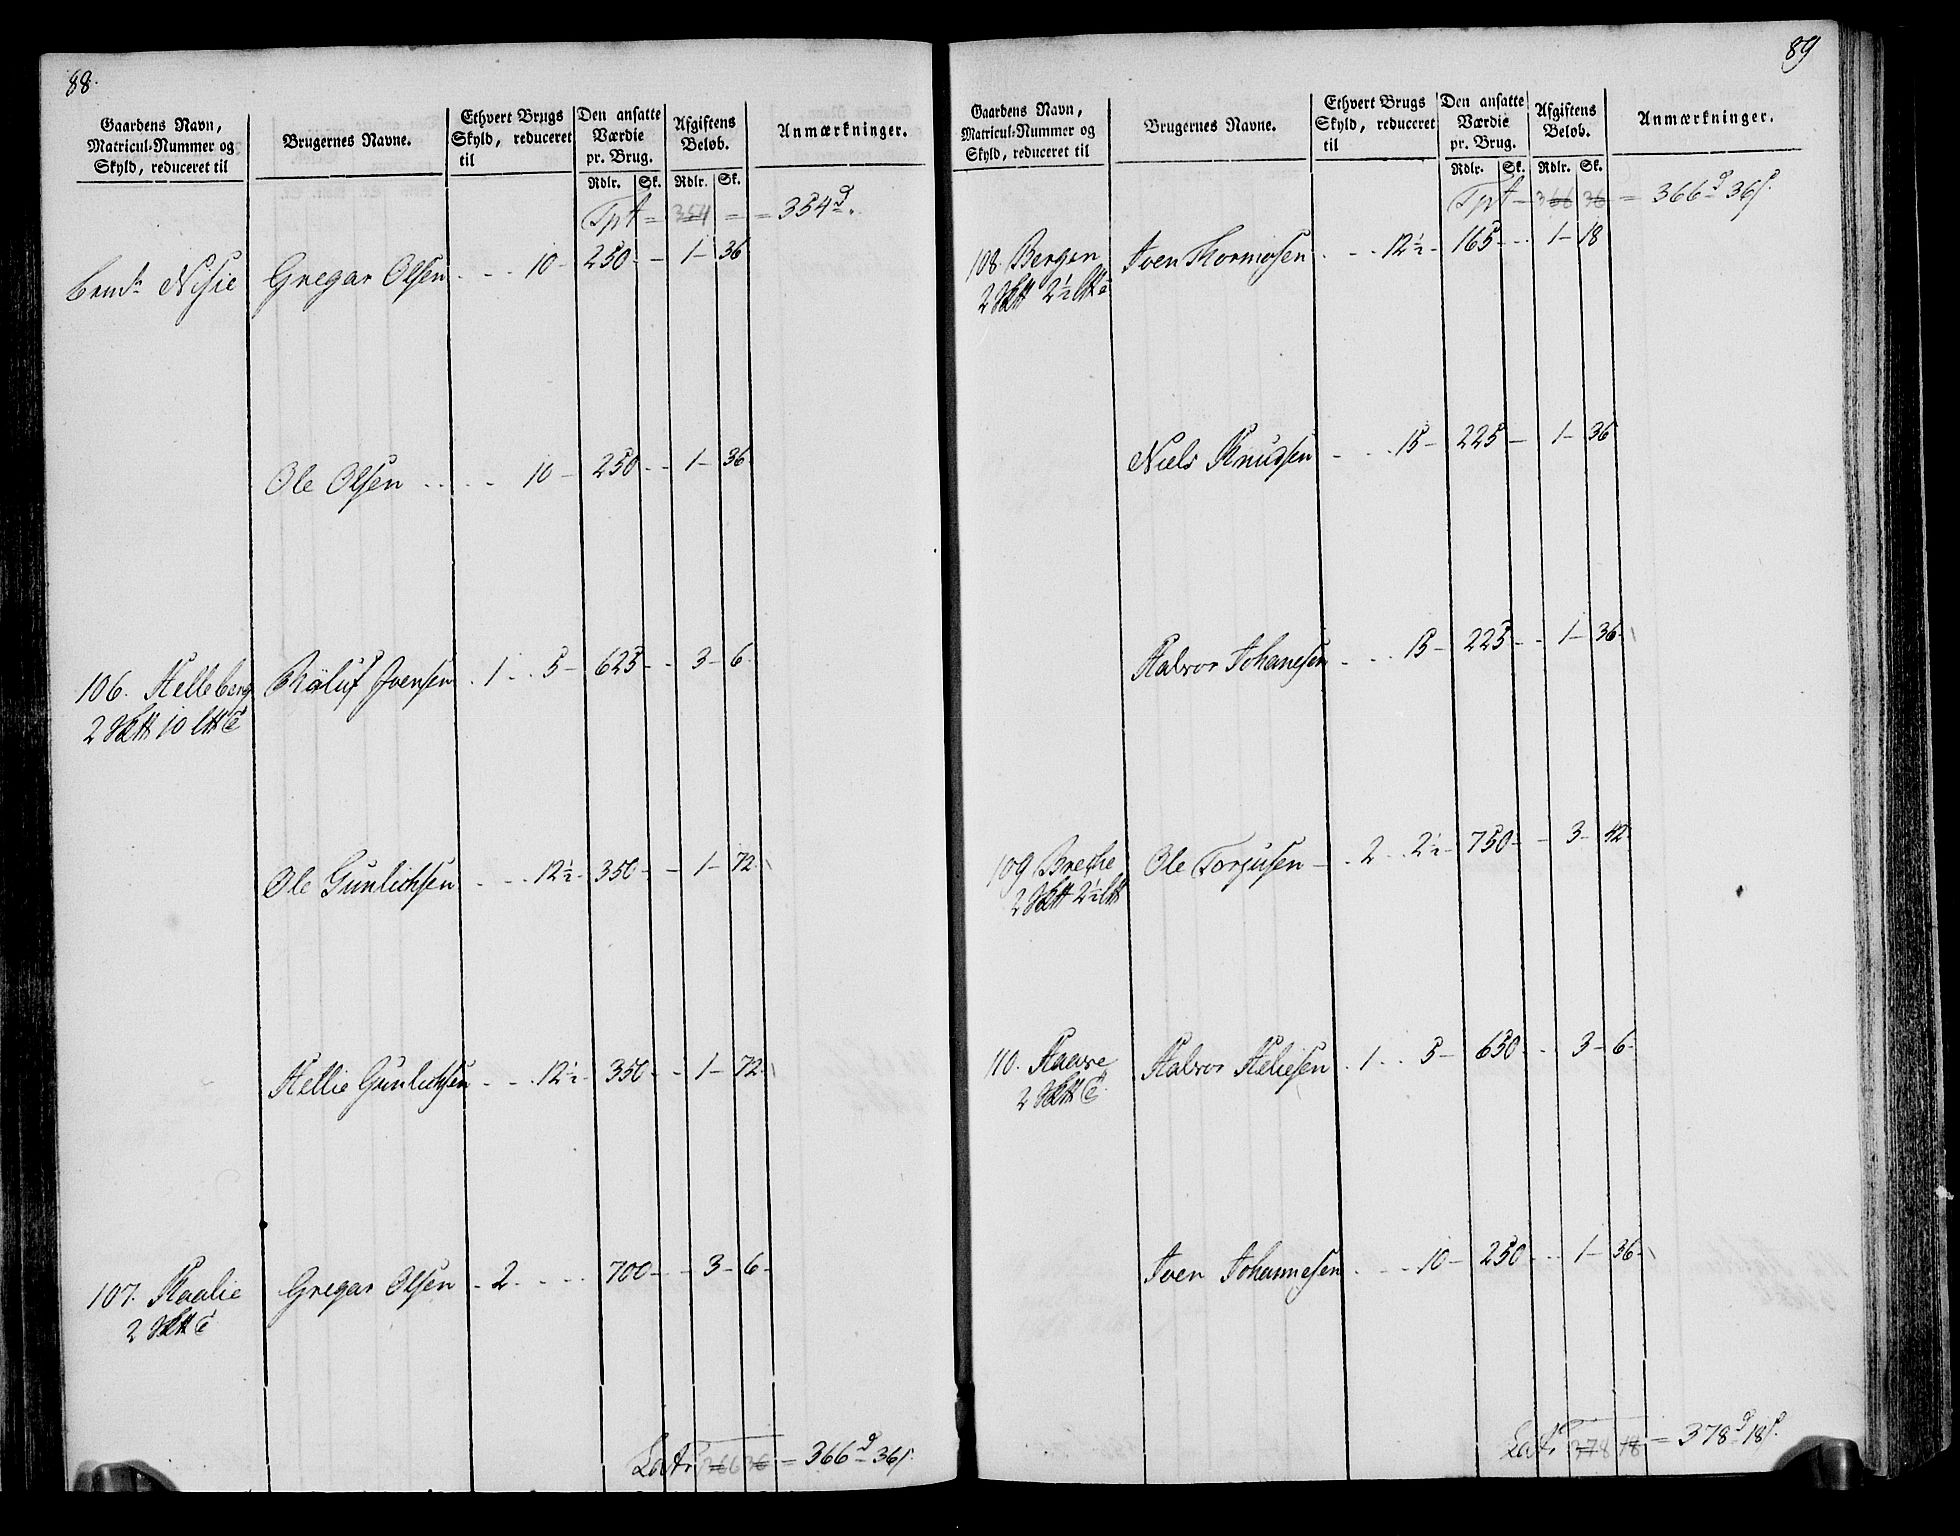 88.
Gaardens Navn, Matricul-Nummer og Skyld, reduceret til | Brugernes Navne. | Ethvert Brugs Skyld, reduceret til | Den ansatte Værdie pr. Brug. | Afgiftens Beløb. | Anmærkninger.
Rdlr. Sk. Rdlr. Sk.
Tpt = 354 = = 354d.
Nisie Gregar Olsen . . . 10 - 250 - - 1 - 36
Ole Olsen . . . . . 10 - 250 - - 1 - 36
106. Helleberg Roluf Ivensen . 1 . . 5 - 625 - - 3 - 6
2 Sktt 10 ltt
Ole Gunlichsen . . . 12½ - 350 - - 1 - 72
Hellie Gunlichsen - . . 12½ - 350 - - 1 - 72
107. Kaalie Gregar Olsen - 2 . . . . 700 - - 3 - 6 -
2 Sktt
Lat. 366 36 = 366d 36s.
89
Gaardens Navn, Matricul-Nummer og Skyld, reduceret til | Brugernes Navne. | Ethvert Brugs Skyld, reduceret til | Den ansatte Værdie pr. Brug. | Afgiftens Beløb. | Anmærkninger.
Rdlr. Sk. Rdlr. Sk.
Tpt - 366 36 = 366d 36s.
108. Bergan Iven Thormosen . . . 12½ - 165 - . . 1 - 18
2 Sktt 2½ ltt
Niels Knudsen - . . . 15 - 225 - - 1 - 36
Halvor Johanesen . . . 15 - 225 - - 1 - 36
109 Brethe Ole Torjusen - . 2 . . 2½ - 750 - - 3 - 42
2 Sktt 2½ ltt
110. Haave Halvor Heliesen . 1 . . 5 - 650 - . 3 - 6 -
2 Sktt
Iven Johannesen . . . . 10 - 250 - . . 1 - 36
Lat. 378 18 = 378d 18s.